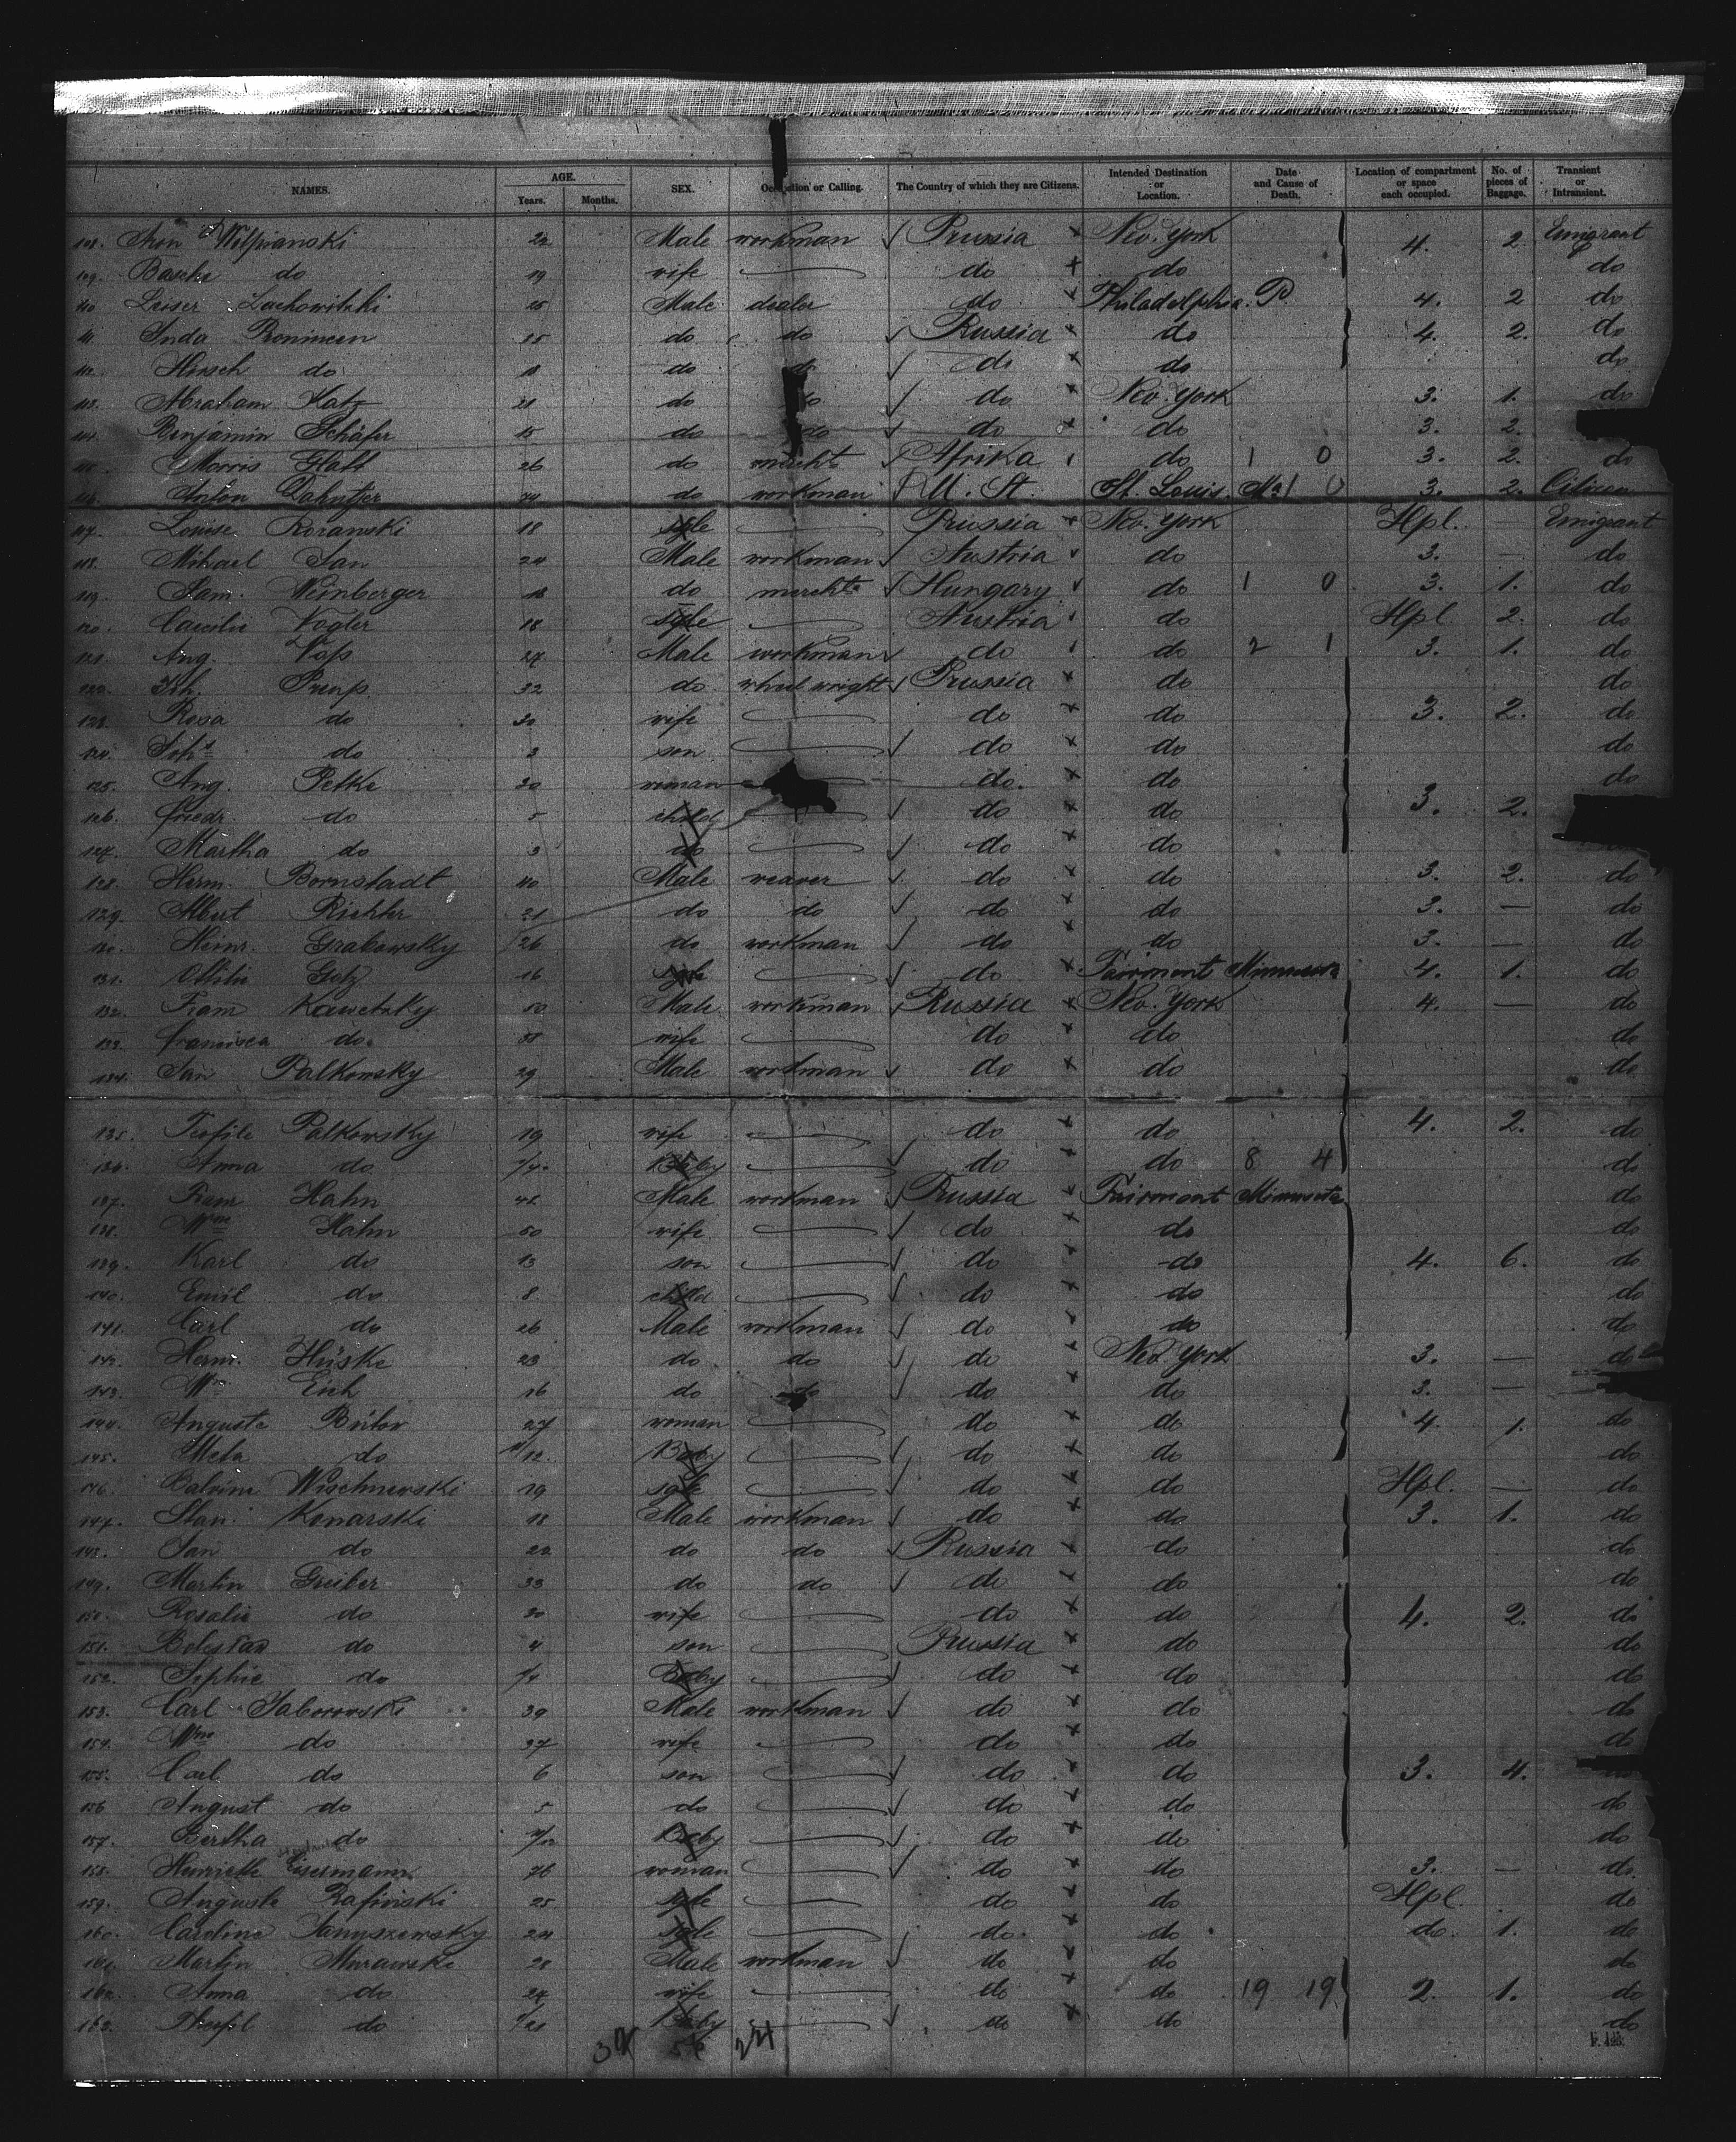 NAMES. AGE. Years. Months. SEX. Occupation or Calling. The Country of which they are Citizens. Intended Destination or Location. Date and Cause of Death. Location of compartment or space each occupied. No. of pieces of Baggage. Transient or Intransient.
108. Aron Wolpianski 22 Male workman Prussia New. York 4. 2 Emigrant
109. Basche do 19 wife do do do
110 Leiser Lachowitzki 25 Male dealer do Philadelphia. P. 4. 2 do
111. Inda 25 do do Russia do 4. 2. do
112. Hirsch do 18 do do do do do
113. Abraham Katz 21 do do do New. York 3. 1. do
114. Benjamin Schäfer 15 do do do do 3. 2.
115. Morris Glatt 26 do mercht Afrika do 1 0 3. 2. do
116. Anton do workman U. St. St. Louis. Mo 1 0 3. 2. Citizen
117. Louise Rozanski 18 sgle Prussia New. York Hpl. Emigrant
118. Mihael Jan 24 Male workman Austria do 3. — do
119. Sam. Weinberger 18 do mercht Hungary do 1 0 3. 1. do
120. Vogler 18 sgle Austria do Hpl 2. do
121. Aug. Voss 27. Male workman do do 2 1 3. 1. do
122. Joh. 32 do wheel wright Prussia do do
123. Rosa do 30 wife do do 3. 2. do
124. Joh do 3 son do do do
125. Aug. Petke 30 woman do. do do
126. Friedr. do 5 child do do 3. 2.
127. Martha do 3 do do do
128. Herm. Bornstadt 40 Male weaver do do 3. 2. do
129. Albert Richter 21 do do do do 3. — do
130. Heinr. Grabowsky 26 do workman do do 3. — do
131. Ottilie Getz 16 sgle do Fairmont Minnesota 4. 1. do
132. Franz Kawetzky 50 Male workman Russia New. York 4. — do
133. Francisca do. 58 wife do do do
134. Jan Palkowsky 29 Male workman do do do
135. Teofile Palkowsky 19 wife do do 4. 2. do
136. Anna do Baby do do 8 4 do
137. Franz Hahn 42 Male workman Prussia Fairmont Minnesota do
138. Wme Hahn 50 wife do do do
139. Karl do 13 son do do 4. 6. do
140. Emil do 8 child do do do
141. Carl do 26 Male workman do do do
142. Herm. Hüske 23 do do do New York 3. — do
143. Wm Eich 16 do do do do 3. — do
144. Auguste Bülow 27 woman do do 4. 1. do
145. Meta do 11/12. Baby do do do
146. Wischnewski 19 sgle do do Hpl. — do
147. Stan. Konarski 18 Male workman do do 3. 1. do
148. Jan do 22 do do Russia do do
149. Martin Greiber 33 do do do do do
150. Rosalie do 30 wife do do 4. 2. do
151. Boleslav do 4 son Prussia do do
152. Sophie do 1/4 Baby do do do
153. Carl Jaborowski 39 Male workman do do do
154. Wme do 37 wife do do do
155. Carl do 6 son do do 3. 4.
156 August do 5 do do do do
157. Bertha do Baby do do do
158. Henriette Eisermann 76 woman do do 3. — do.
159. Auguste Rafinski 25 sgle do do Hpl. do
160. Caroline Januszewsky 24 sgle do. do do. 1. do
161. Martin Murawski 28 Male workman do do do
162. Anna do 24 wife do do 19 19 2. 1. do
163. do Baby do do do
24